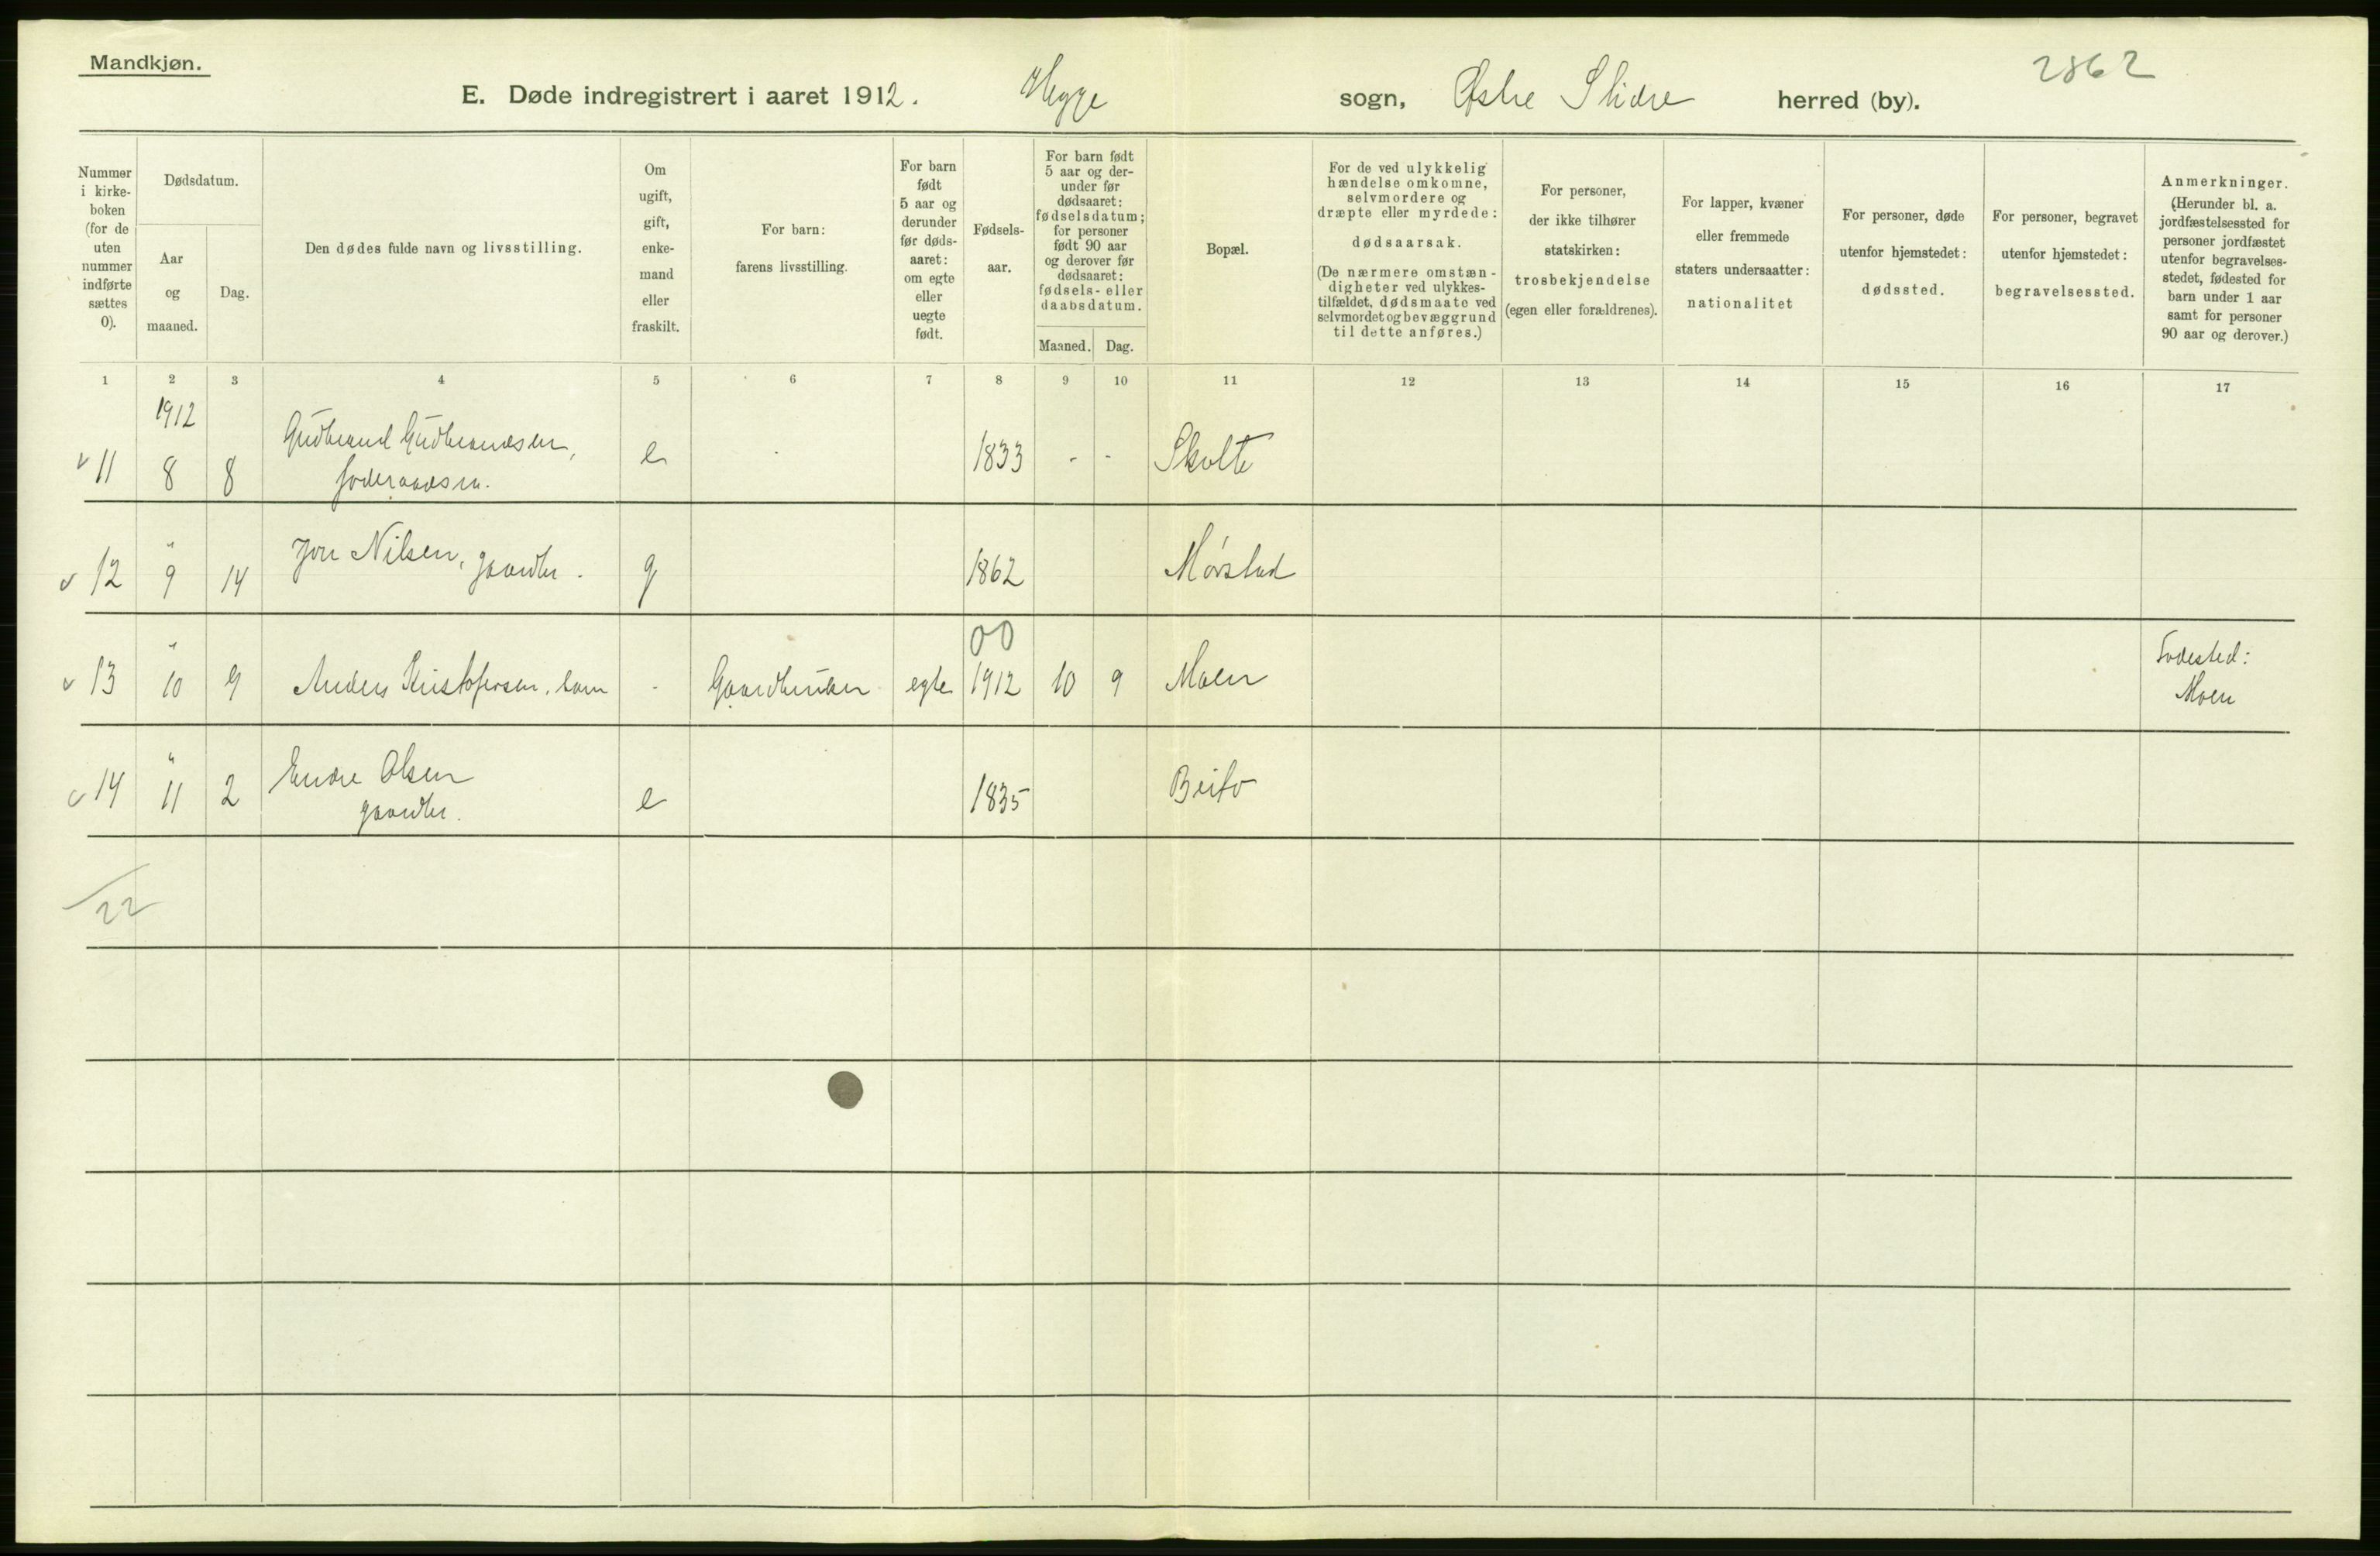 Mandkjøn.
2862
E. Døde indregistrert i aaret 1912. Hegge sogn, Østre Slidre herred (by).
Nummer i kirke- boken (for de uten nummer indførte sættes 0).
Dødsdatum.
Aar og maaned.
Dag.
Den dødes fulde navn og livsstilling.
Om ugift, gift, enke- mand eller fraskilt.
For barn: farens livsstilling.
For barn født 5 aar og derunder før døds- aaret: om egte eller uegte født.
Fødsels- aar.
For barn født 5 aar og der- under før dødsaaret: fødselsdatum; for personer født 90 aar og derover før dødsaaret: fødsels- eller daabsdatum.
Maaned. Dag.
Bopæl.
For de ved ulykkelig hændelse omkomne, selvmordere og dræpte eller myrdede: dødsaarsak. (De nærmere omstæn- digheter ved ulykkes- tilfældet, dødsmaate ved selvmordet og bevæggrund til dette anføres.)
For personer, der ikke tilhører statskirken: trosbekjendelse (egen eller forældrenes).
For lapper, kvæner eller fremmede staters undersaatter: nationalitet
For personer, døde utenfor hjemstedet: dødssted.
For personer, begravet utenfor hjemstedet: begravelsessted.
Anmerkninger. (Herunder bl. a. jordfæstelsessted for personer jordfæstet utenfor begravelses- stedet, fødested for barn under 1 aar samt for personer 90 aar og derover.)
1 2 3 4 5 6 7 8 9 10 11 12 13 14 15 16 17
1912
11 8 8 Gudbrand Gudbrandsen, foderaadsm. e - 1833 - - Skolte
12 " 9 14 Jon Nilsen, gaardbr. g 1862 Mørstad
00
13 " 10 9 Anders Kristofersen, barn - Gaardbruker egte 1912 10 9 Moen Fødested: Moen
14 " 11 2 Endre Olsen gaardbr. e 1835 Beito
22